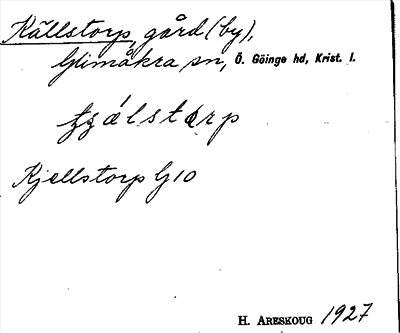 Källstorp, gård (by),
Glimåkra sn, Ö. Göinge hd, Krist. l.
Kjellstorp G 10
H. ARESKOUG 1927